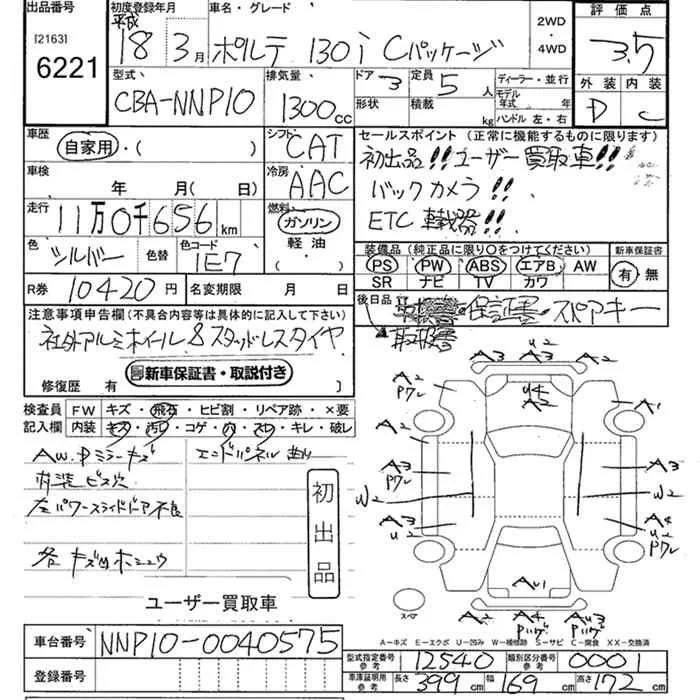 出品番号
[2163]
6221
初度登録年月
平成
18年 3月
車名・グレード
ポルテ 130i Cパッケージ
2WD
・
4WD
評価点
3.5
型式
CBA-NNP10
排気量
1300cc
ドア 3
定員 5人
形状
積載 kg
ディーラー・並行
モデル年式 年
ハンドル 左・右
外装 内装
D C
車歴
自家用・( )
シフト
CAT
セールスポイント (正常に機能するものに限ります)
初出品!! ユーザー買取車!!
車検
年 月( 日)
冷房
AAC
バックカメラ!!
走行
11万0千656km
燃料
ガソリン
軽油
・( )
ETC車載器!!
色
シルバー
色替
色コード
1E7
装備品 (純正品に限り○をつけてください)
PS PW ABS エアB AW
SR ナビ TV カワ
新車保証書
有 無
R券 10420円
名変期限 月 日
後日品
保証書 スペアキー
取扱書
注意事項申告欄(不具合内容等は具体的に記入して下さい)
社外アルミホイール&スタッドレスタイヤ
新車保証書・取説付き
修復歴 有( )
検査員 FW キズ・飛石・ヒビ割・リペア跡・×要
記入欄 内装 キズ・汚れ・コゲ・穴・スレ・キレ・破レ
AW.Pミラーキズ
エンドパネル曲り
内装ビス穴
左パワースライドドア不良
各キズ凹ホシュウ
初出品
ユーザー買取車
A2 A3 U2 A2
A2 Pワレ
U4
A2
A1
A2
A3 Pワレ
W2
A3 U2
A3 Pワレ
W2
A4 U2 Pワレ
AU1
スペア
A2 A4 AU3
A-キズ E-エクボ U-凹み W-補修跡 S-サビ C-腐食 XX-交換済
車台番号 NNP10-0040575
登録番号
型式指定番号 参考 12540
類別区分番号 参考 0001
車庫証明用 参考 長さ 399cm 幅 169cm 高さ 172cm